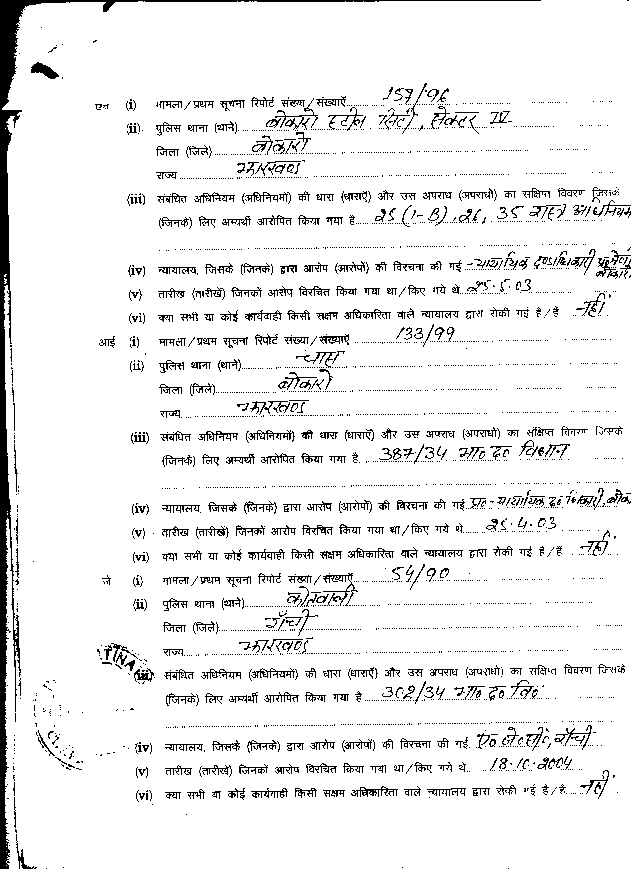 एच (i) मामला/प्रथम सूचना रिपोर्ट संख्या/संख्याएँ 157/96
(ii) पुलिस थाना (थाने) बोकारो स्टील सिटी, सेक्टर IV
जिला (जिले) बोकारो
राज्य झारखण्ड
(iii) संबंधित अधिनियम (अधिनियमों) की धारा (धाराएँ) और उस अपराध (अपराधों) का संक्षिप्त विवरण जिसके
(जिनके) लिए अभ्यर्थी आरोपित किया गया है 25 (1-B), 26, 35 शस्त्र अधिनियम
(iv) न्यायालय, जिसके (जिनके) द्वारा आरोप (आरोपों) की विरचना की गई न्यायिक दण्डाधिकारी बोकारो
(v) तारीख (तारीखें) जिनको आरोप विरचित किया गया था/किए गये थे 25.5.03
(vi) क्या सभी या कोई कार्यवाही किसी सक्षम अधिकारिता वाले न्यायालय द्वारा रोकी गई है/हैं नहीं
आई (i) मामला/प्रथम सूचना रिपोर्ट संख्या/संख्याएँ 133/99
(ii) पुलिस थाना (थाने) चास
जिला (जिले) बोकारो
राज्य झारखण्ड
(iii) संबंधित अधिनियम (अधिनियमों) की धारा (धाराएँ) और उस अपराध (अपराधों) का संक्षिप्त विवरण जिसके
(जिनके) लिए अभ्यर्थी आरोपित किया गया है 387/34 भा० द० विधान
(iv) न्यायालय, जिसके (जिनके) द्वारा आरोप (आरोपों) की विरचना की गई
(v) तारीख (तारीखें) जिनको आरोप विरचित किया गया था/किए गये थे 25.4.03
(vi) क्या सभी या कोई कार्यवाही किसी सक्षम अधिकारिता वाले न्यायालय द्वारा रोकी गई है/हैं नहीं
जे (i) मामला/प्रथम सूचना रिपोर्ट संख्या/संख्याएँ 54/90
(ii) पुलिस थाना (थाने) कोतवाली
जिला (जिले) राँची
राज्य झारखण्ड
(iii) संबंधित अधिनियम (अधिनियमों) की धारा (धाराएँ) और उस अपराध (अपराधों) का संक्षिप्त विवरण जिसके
(जिनके) लिए अभ्यर्थी आरोपित किया गया है 302/34 भा० द० वि०
(iv) न्यायालय, जिसके (जिनके) द्वारा आरोप (आरोपों) की विरचना की गई ए० जे० सी०, राँची
(v) तारीख (तारीखें) जिनको आरोप विरचित किया गया था/किए गये थे 18.10.2004
(vi) क्या सभी या कोई कार्यवाही किसी सक्षम अधिकारिता वाले न्यायालय द्वारा रोकी गई है/हैं नहीं